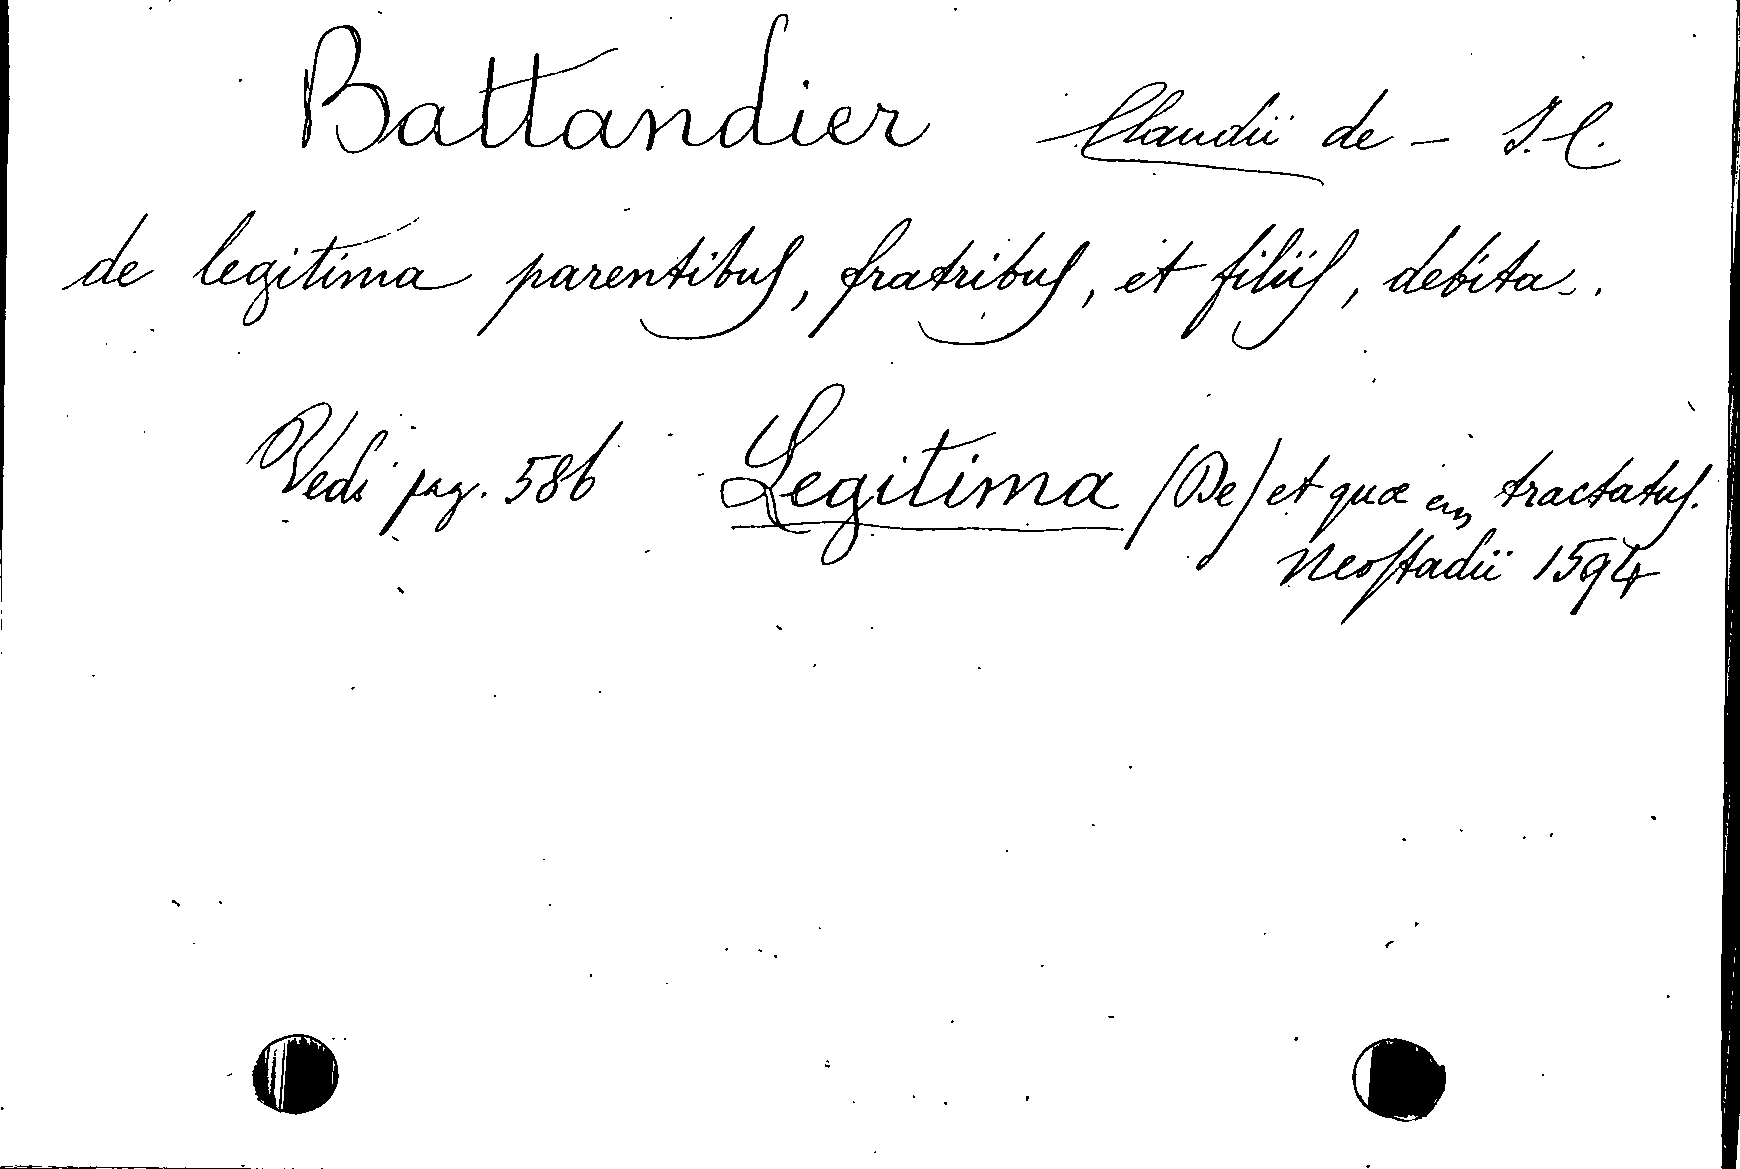 Battandier Claudii de - J. C.
de legitima parentibus, fratribus, et filiis, debita.
Vedi pag. 586 Legitima (De) et quæ tractatus.
Neostadii 1594